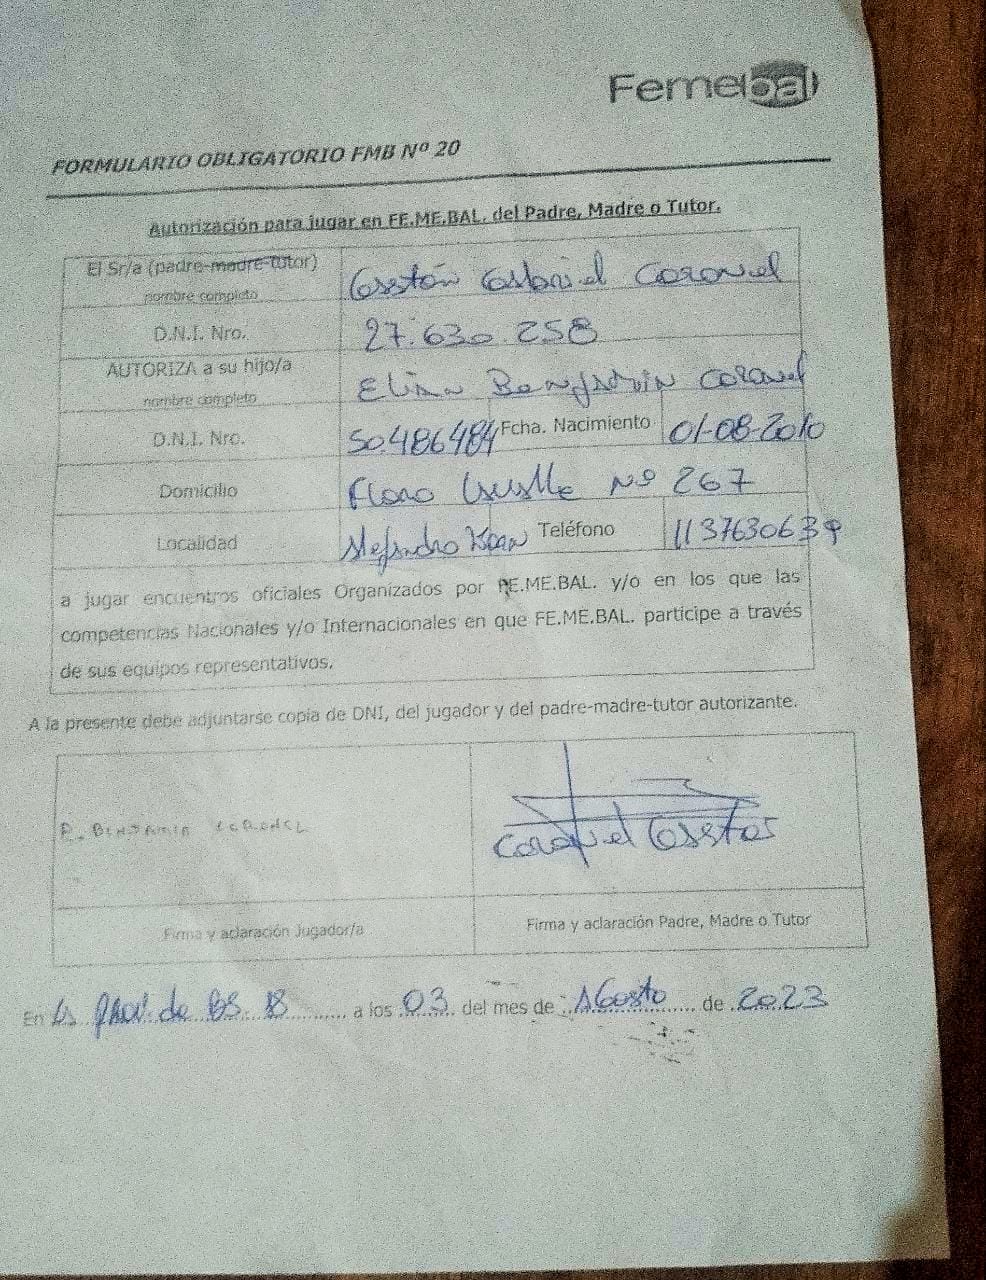 Femebal
FORMULARIO OBLIGATORIO FMB Nº 20
Autorización para jugar en FE.ME.BAL. del Padre, Madre o Tutor.
El Sr/a (padre-madre-tutor) nombre completo Gastón Gabriel Coronel
D.N.I. Nro. 27.630.258
AUTORIZA a su hijo/a nombre completo Benjamin Coronel
D.N.I. Nro. 50.486484 Fcha. Nacimiento 01-08-2010
Domicilio Nº 267
Localidad Alejandro Korn Teléfono 1137630639
a jugar encuentros oficiales Organizados por FE.ME.BAL. y/o en los que las
competencias Nacionales y/o Internacionales en que FE.ME.BAL. participe a través
de sus equipos representativos.
A la presente debe adjuntarse copia de DNI, del jugador y del padre-madre-tutor autorizante.
Coronel Gaston
Firma y aclaración Jugador/a Firma y aclaración Padre, Madre o Tutor
En La Prov. de BS. a los 03 del mes de Agosto de 2023